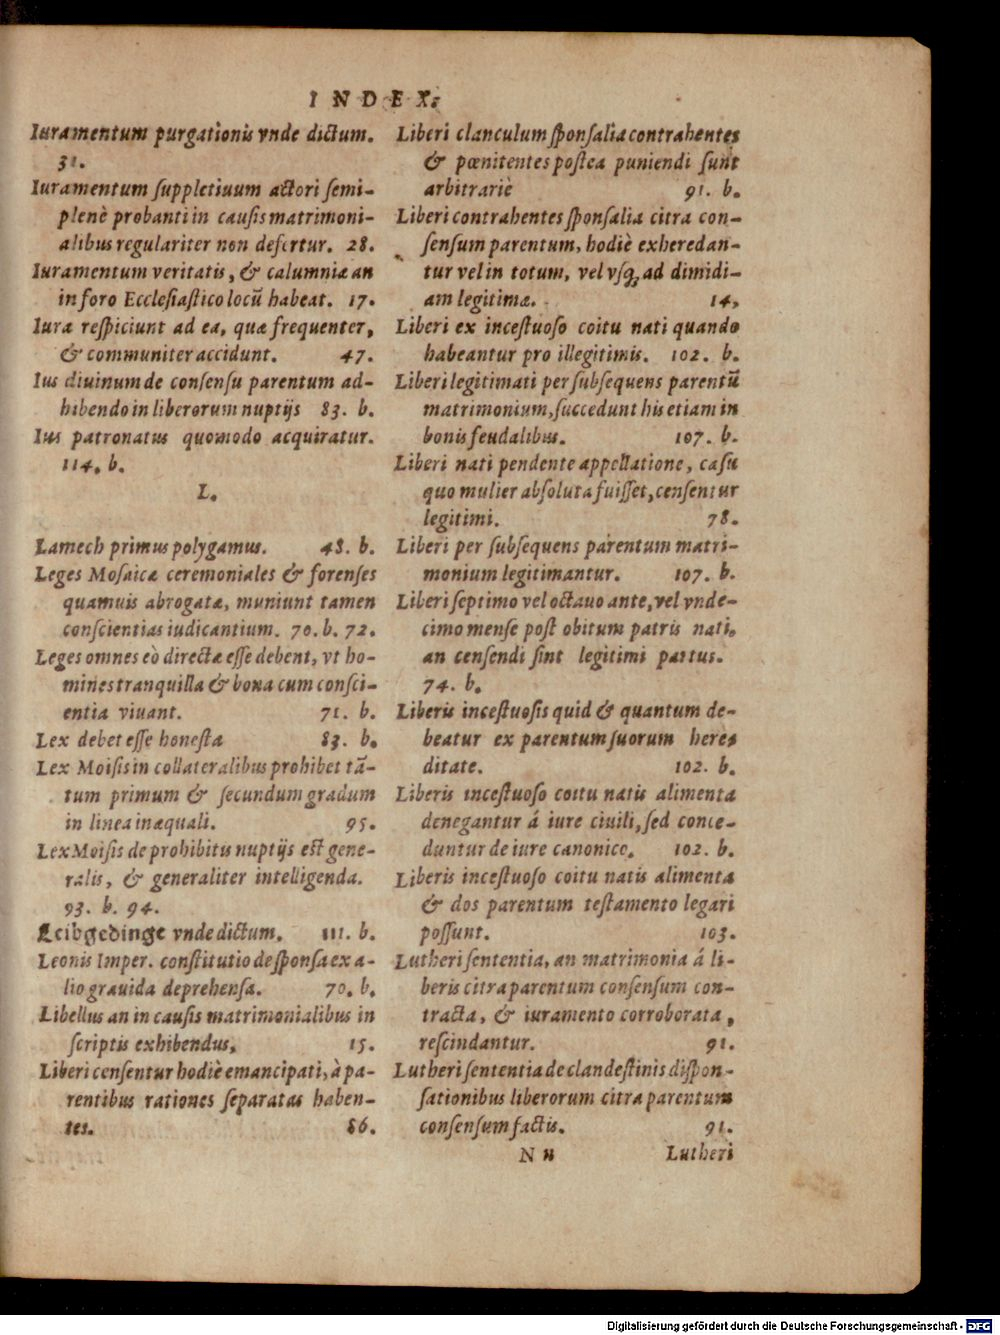 INDEX.
Iuramentum purgationis vnde dictum.
31.
Iuramentum suppletiuum actori semi-
plenè probanti in causis matrimoni-
alibus regulariter non defertur. 28.
Iuramentum veritatis, & calumniæ an
in foro Ecclesiastico locũ habeat. 17.
Iura respiciunt ad ea, quæ frequenter,
& communiter accidunt. 47.
Ius diuinum de consensu parentum ad-
hibendo in liberorum nuptijs 83. b.
Ius patronatus quomodo acquiratur.
114. b.
L.
Lamech primus polygamus. 48. b.
Leges Mosaicæ ceremoniales & forenses
quamuis abrogatæ, muniunt tamen
conscientias iudicantium. 70. b. 72.
Leges omnes eò directæ esse debent, vt ho-
mines tranquilla & bona cum consci-
entia viuant. 71. b.
Lex debet esse honesta 83. b.
Lex Moisis in collateralibus prohibet tã-
tum primum & secundum gradum
in linea inæquali. 95.
Lex Moisis de prohibitis nuptijs est gene-
ralis, & generaliter intelligenda.
93. b. 94.
Leibgedinge vnde dictum. 111. b.
Leonis Imper. constitutio de sponsa ex a-
lio grauida deprehensa. 70. b.
Libellus an in causis matrimonialibus in
scriptis exhibendus. 15.
Liberi censentur hodiè emancipati, à pa-
rentibus rationes separatas haben-
tes. 86.
Liberi clanculum sponsalia contrahentes
& pœnitentes postea puniendi sunt
arbitrariè 91. b.
Liberi contrahentes sponsalia citra con-
sensum parentum, hodiè exheredan-
tur vel in totum, vel vsq; ad dimidi-
am legitimæ. 14.
Liberi ex incestuoso coitu nati quando
habeantur pro illegitimis. 102. b.
Liberi legitimati per subsequens parentũ
matrimonium, succedunt his etiam in
bonis feudalibus. 107. b.
Liberi nati pendente appellatione, casu
quo mulier absoluta fuisset, censentur
legitimi. 78.
Liberi per subsequens parentum matri-
monium legitimantur. 107. b.
Liberi septimo vel octauo ante, vel vnde-
cimo mense post obitum patris nati,
an censendi sint legitimi partus.
74. b.
Liberis incestuosis quid & quantum de-
beatur ex parentum suorum here-
ditate. 102. b.
Liberis incestuoso coitu natis alimenta
denegantur á iure ciuili, sed conce-
duntur de iure canonico. 102. b.
Liberis incestuoso coitu natis alimenta
& dos parentum testamento legari
possunt. 103.
Lutheri sententia, an matrimonia á li-
beris citra parentum consensum con-
tracta, & iuramento corroborata,
rescindantur. 91.
Lutheri sententia de clandestinis dispon-
sationibus liberorum citra parentum
consensum factis. 91.
N n Lutheri
Digitalisierung gefördert durch die Deutsche Forschungsgemeinschaft - DFG